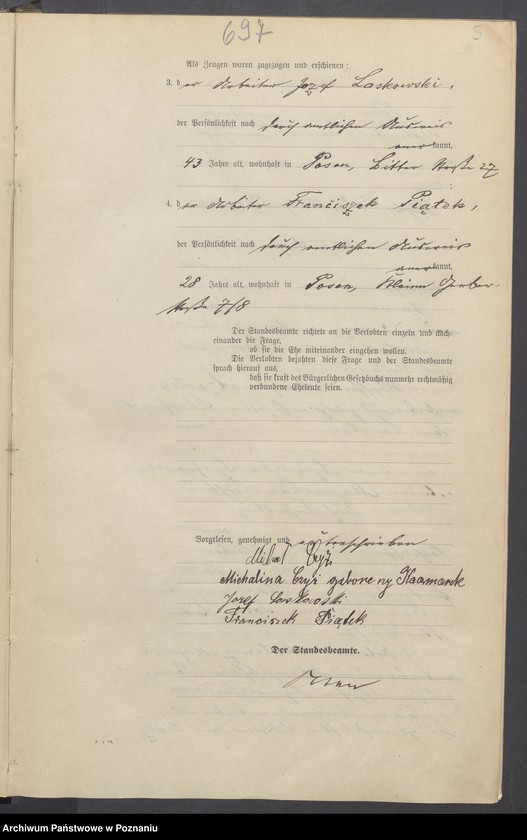 697
5
Als Zeugen waren zugezogen und erschienen:
3. der Arbeiter Jozef Laskowski,
der Persönlichkeit nach durch amtlichen Ausweis
anerkannt,
43 Jahre alt, wohnhaft in Posen, Bitter Straße 27
4. der Arbeiter Franciszek Piątek,
der Persönlichkeit nach durch amtlichen Ausweis
anerkannt,
28 Jahre alt, wohnhaft in Posen, Kleine Gerber-
straße 7/8
Der Standesbeamte richtete an die Verlobten einzeln und nach-
einander die Frage,
ob sie die Ehe miteinander eingehen wollen.
Die Verlobten bejahten diese Frage und der Standesbeamte
sprach hierauf aus,
daß sie kraft des Bürgerlichen Gesetzbuchs nunmehr rechtmäßig
verbundene Eheleute seien.
Vorgelesen, genehmigt und unterschrieben
Michał Czyż
Michalina Czyż geborene Kaamarek
Jozef Laskowski
Franciszek Piątek
Der Standesbeamte.
Archiwum Państwowe w Poznaniu